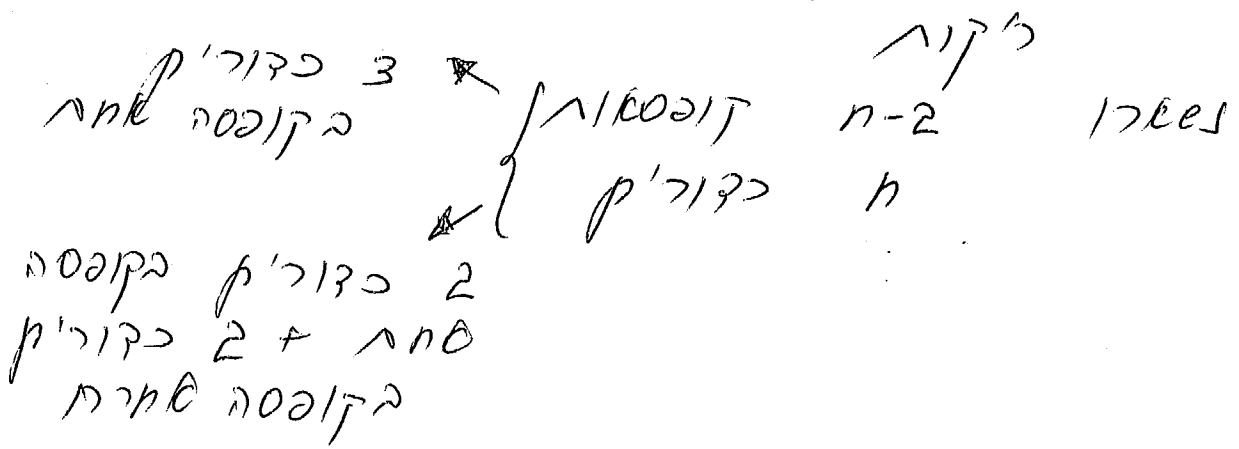 ריקות
נשארו n-2 קופסאות
n כדורים
3 כדורים
בקופסה אחת
2 כדורים בקופסה
אחת + 2 כדורים
בקופסה אחרת